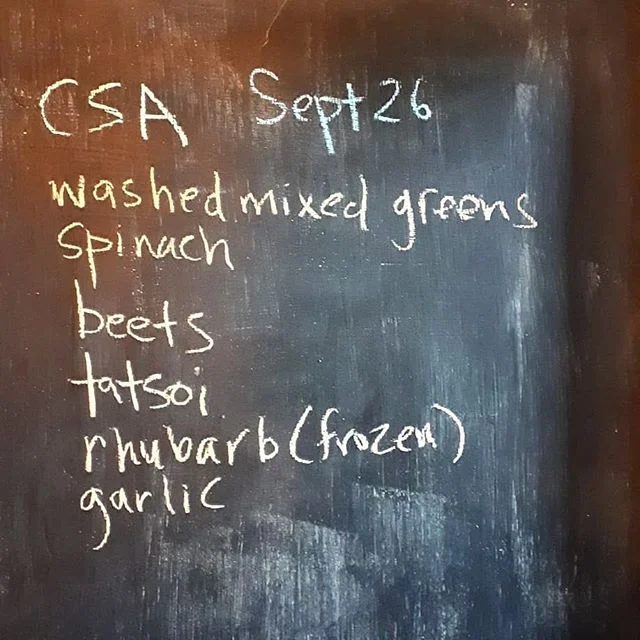 CSA Sept 26
washed mixed greens
spinach
beets
tatsoi
rhubarb (frozen)
garlic